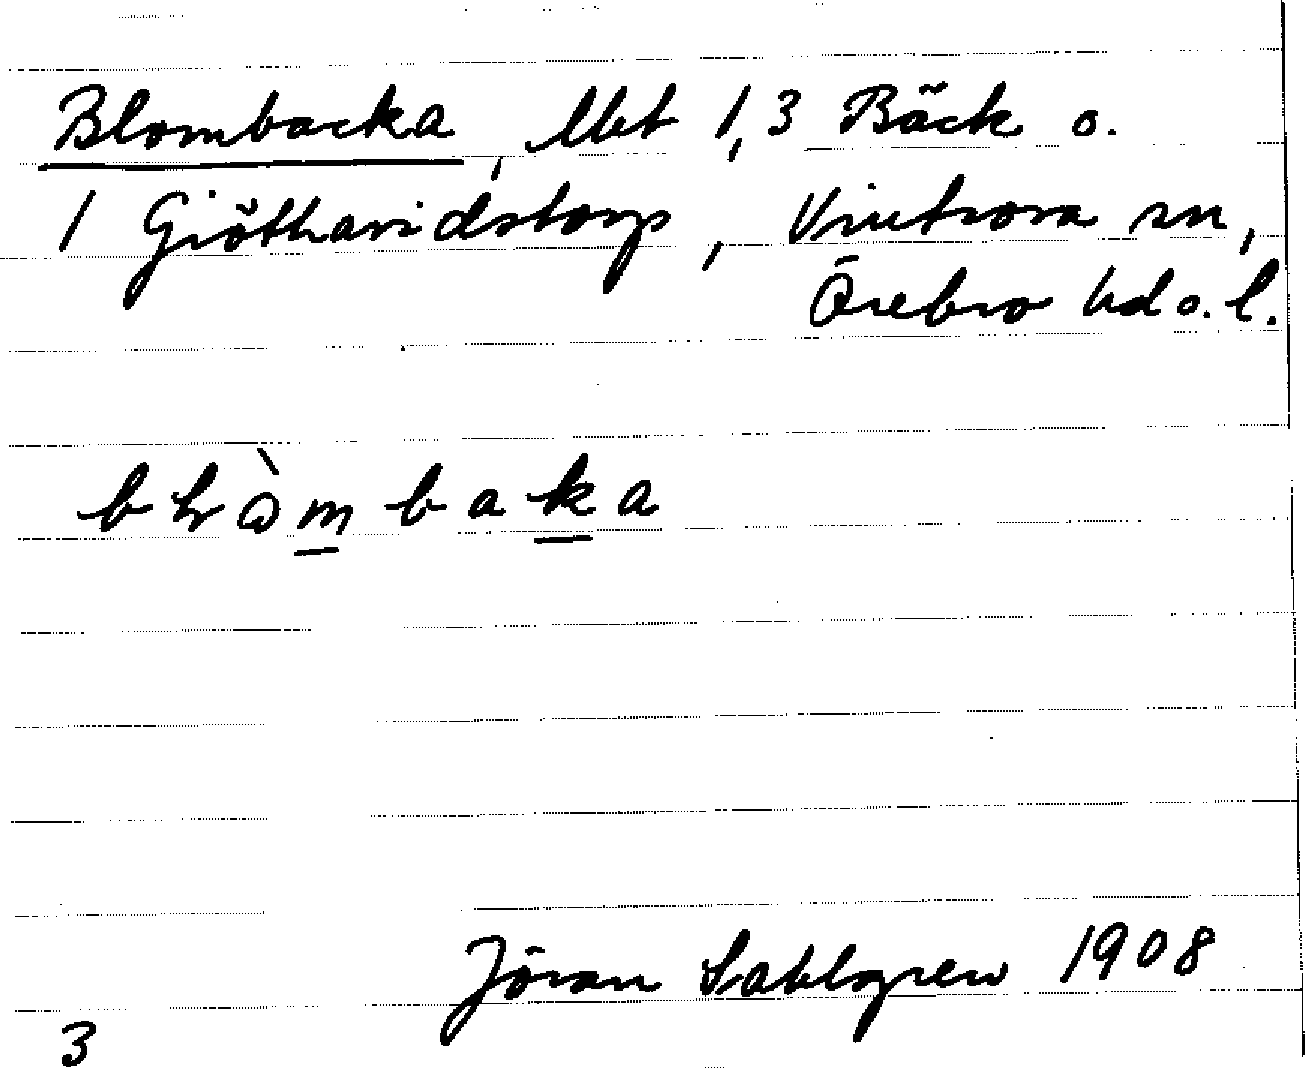 Blombacka, Mbt 1,3 Bäck o.
1 Gjötharidstorp, Vintrosa sn,
Örebro hd o. l.
blòmbaka
Jöran Sahlgren 1908
3